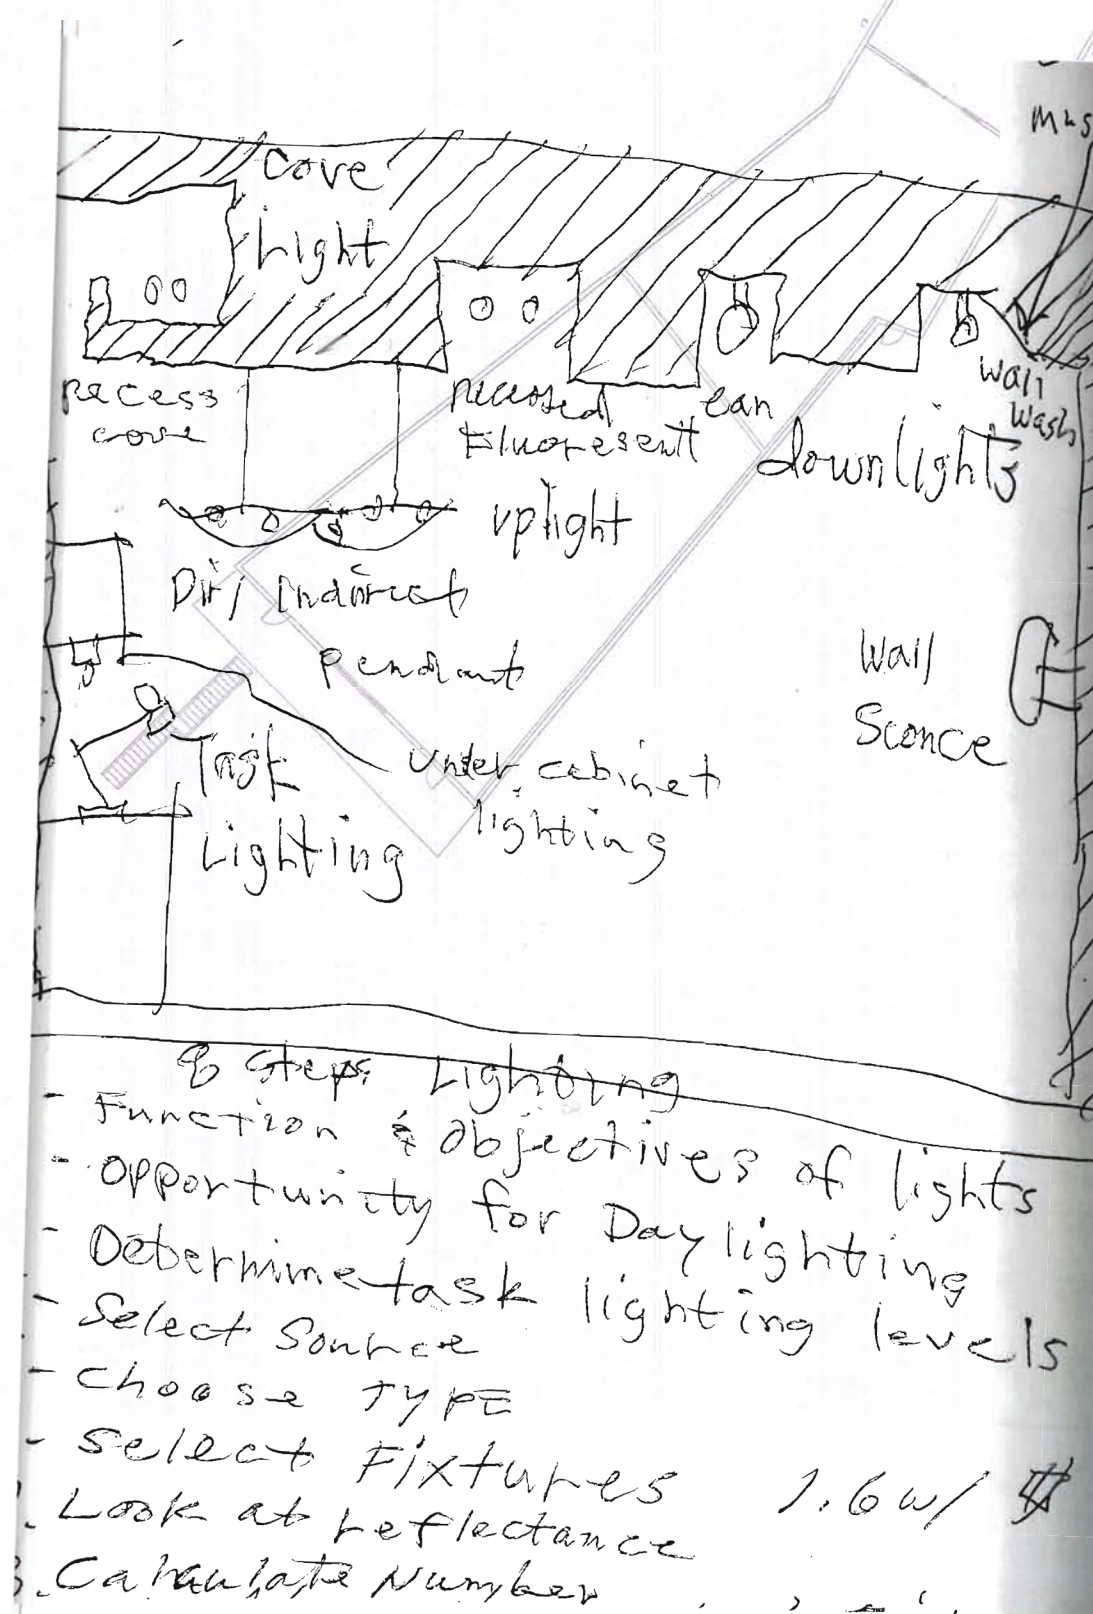 Cove
Light
recess
cove
recessed
Fluoresentt
can
wall
wash
downlights
uplight
Dir/Indirect
pendant
Wall
Sconce
Task
Lighting
Under cabinet
lighting
8 Steps Lighting
- Function & Objectives of lights
- Opportunity for Daylighting
- Determine task lighting levels
- Select Source
- Choose TYPE
- Select Fixtures
1.6 w/ #
. Look at reflectance
8. Calculate Number